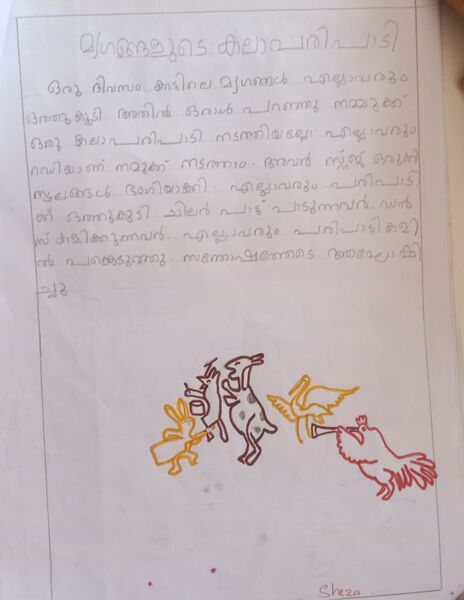 മൃഗങ്ങളുടെ കലാപരിപാടി
ഒരു ദിവസം കാട്ടിലെ മൃഗങ്ങൾ എല്ലാവരും
ഒത്തുകൂടി അതിൽ ഒരാൾ പറഞ്ഞു നമ്മുക്ക്
ഒരു കലാപരിപാടി നടത്തിയല്ലോ. എല്ലാവരും
റഡിയാണ് നമുക്ക് നടത്താം. അവർ സ്റ്റേജ് ഒരുക്കി
സ്ഥലങ്ങൾ ഭംഗിയാക്കി. എല്ലാവരും പരിപാടി
ക്ക് ഒത്തുകൂടി. ചിലർ പാട്ട് പാടുന്നവർ. ഡൻ
സ് കളിക്കുന്നവർ. എല്ലാവരും പരിപാടികളി
ൽ പങ്കെടുത്തു. സന്തോഷത്തോടെ ആഘോഷി
ച്ചു
Sheza